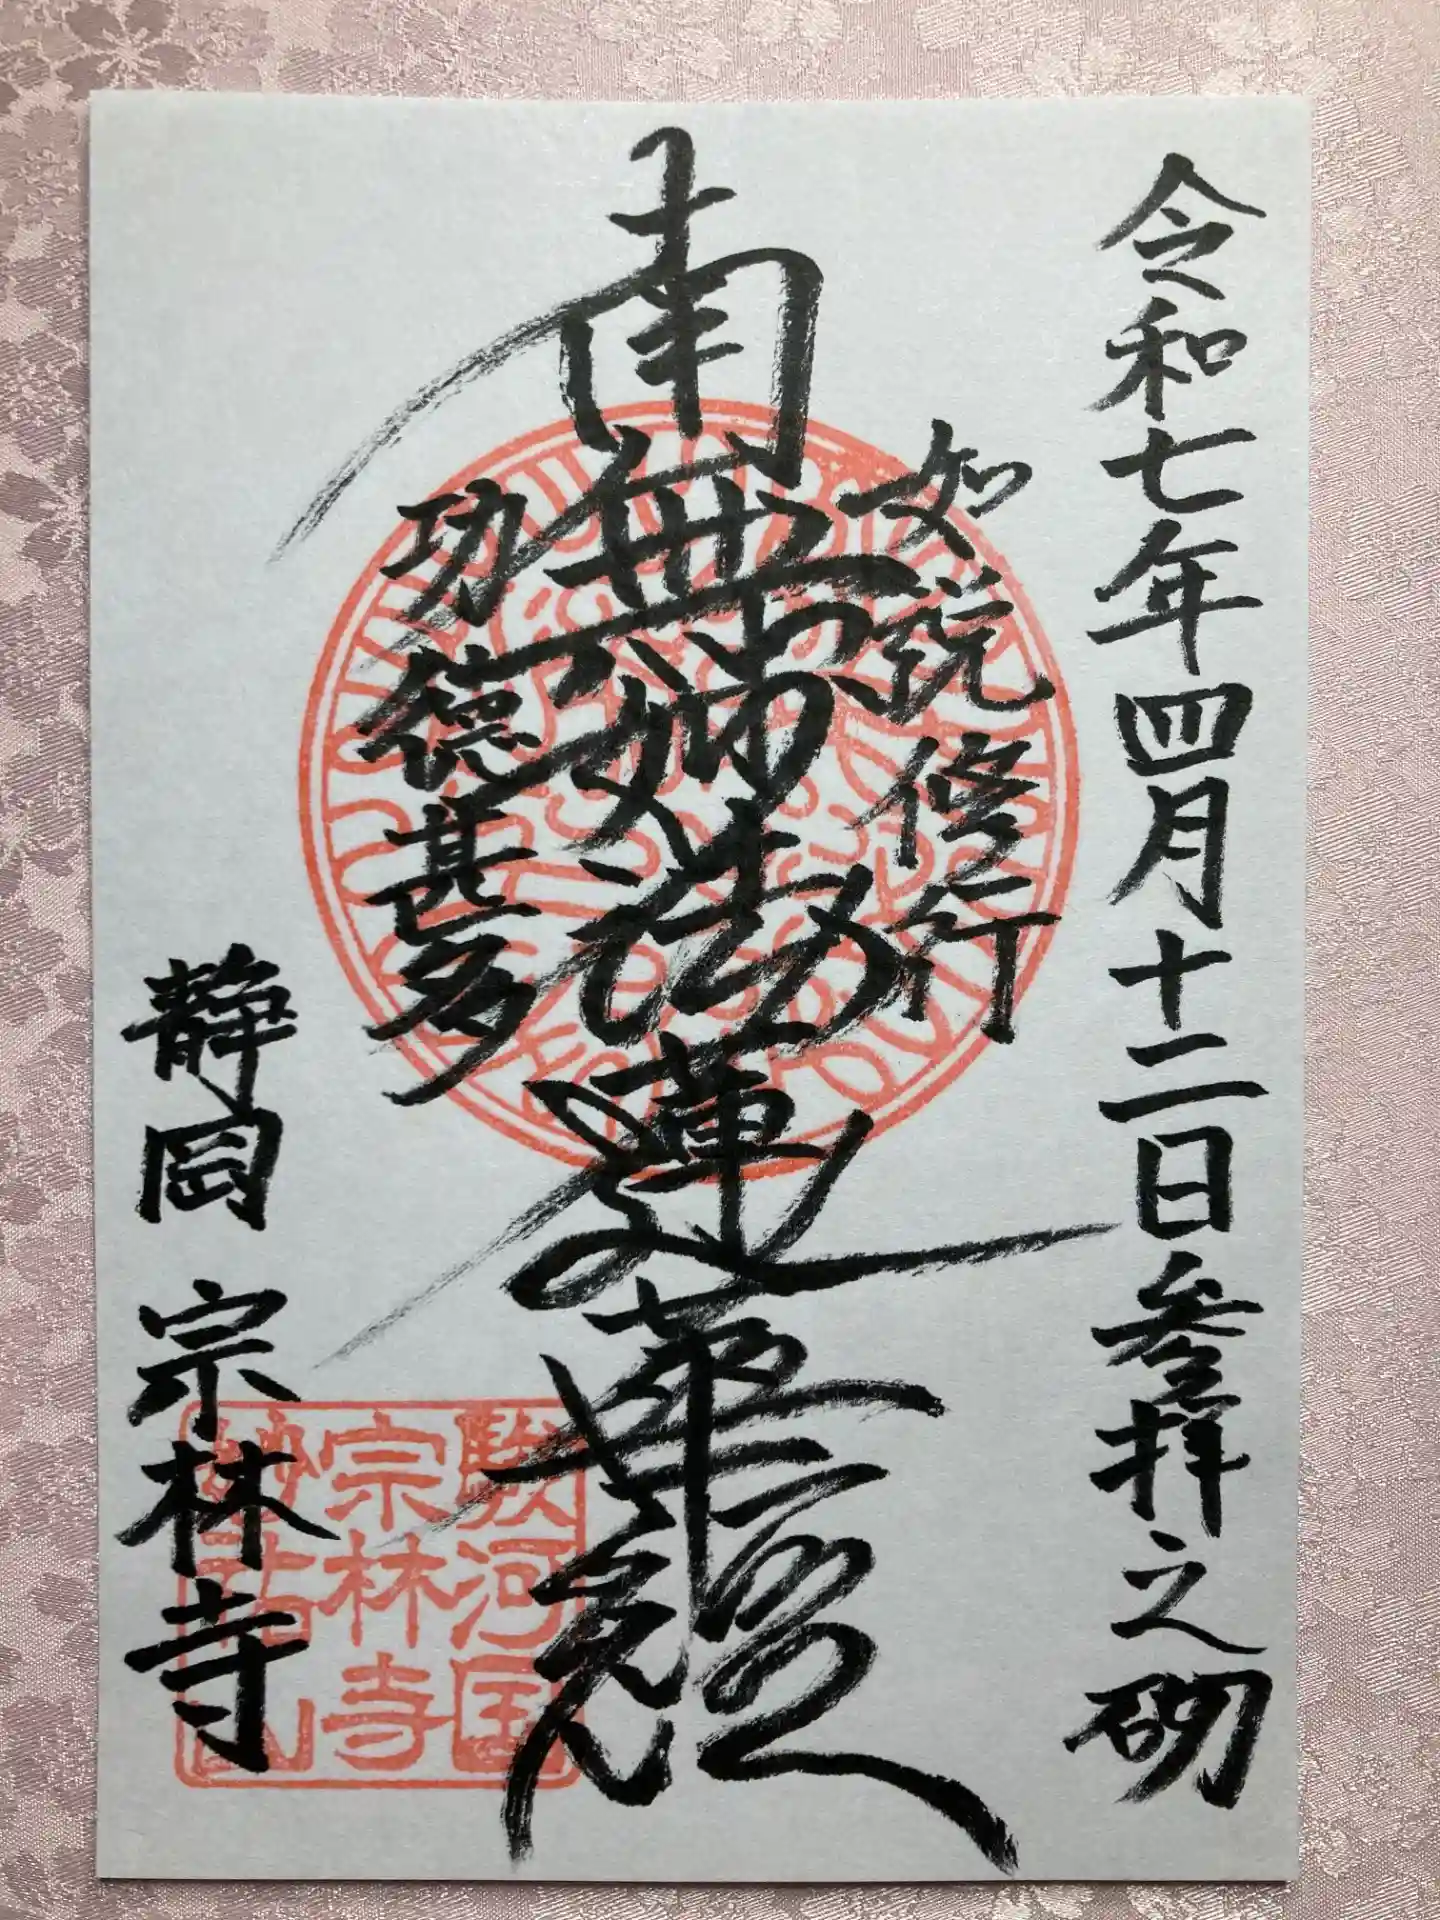 令和七年四月十二日参拝之砌
如説修行
南無妙法蓮華経
功徳甚多
静岡 宗林寺
駿河国
宗林寺